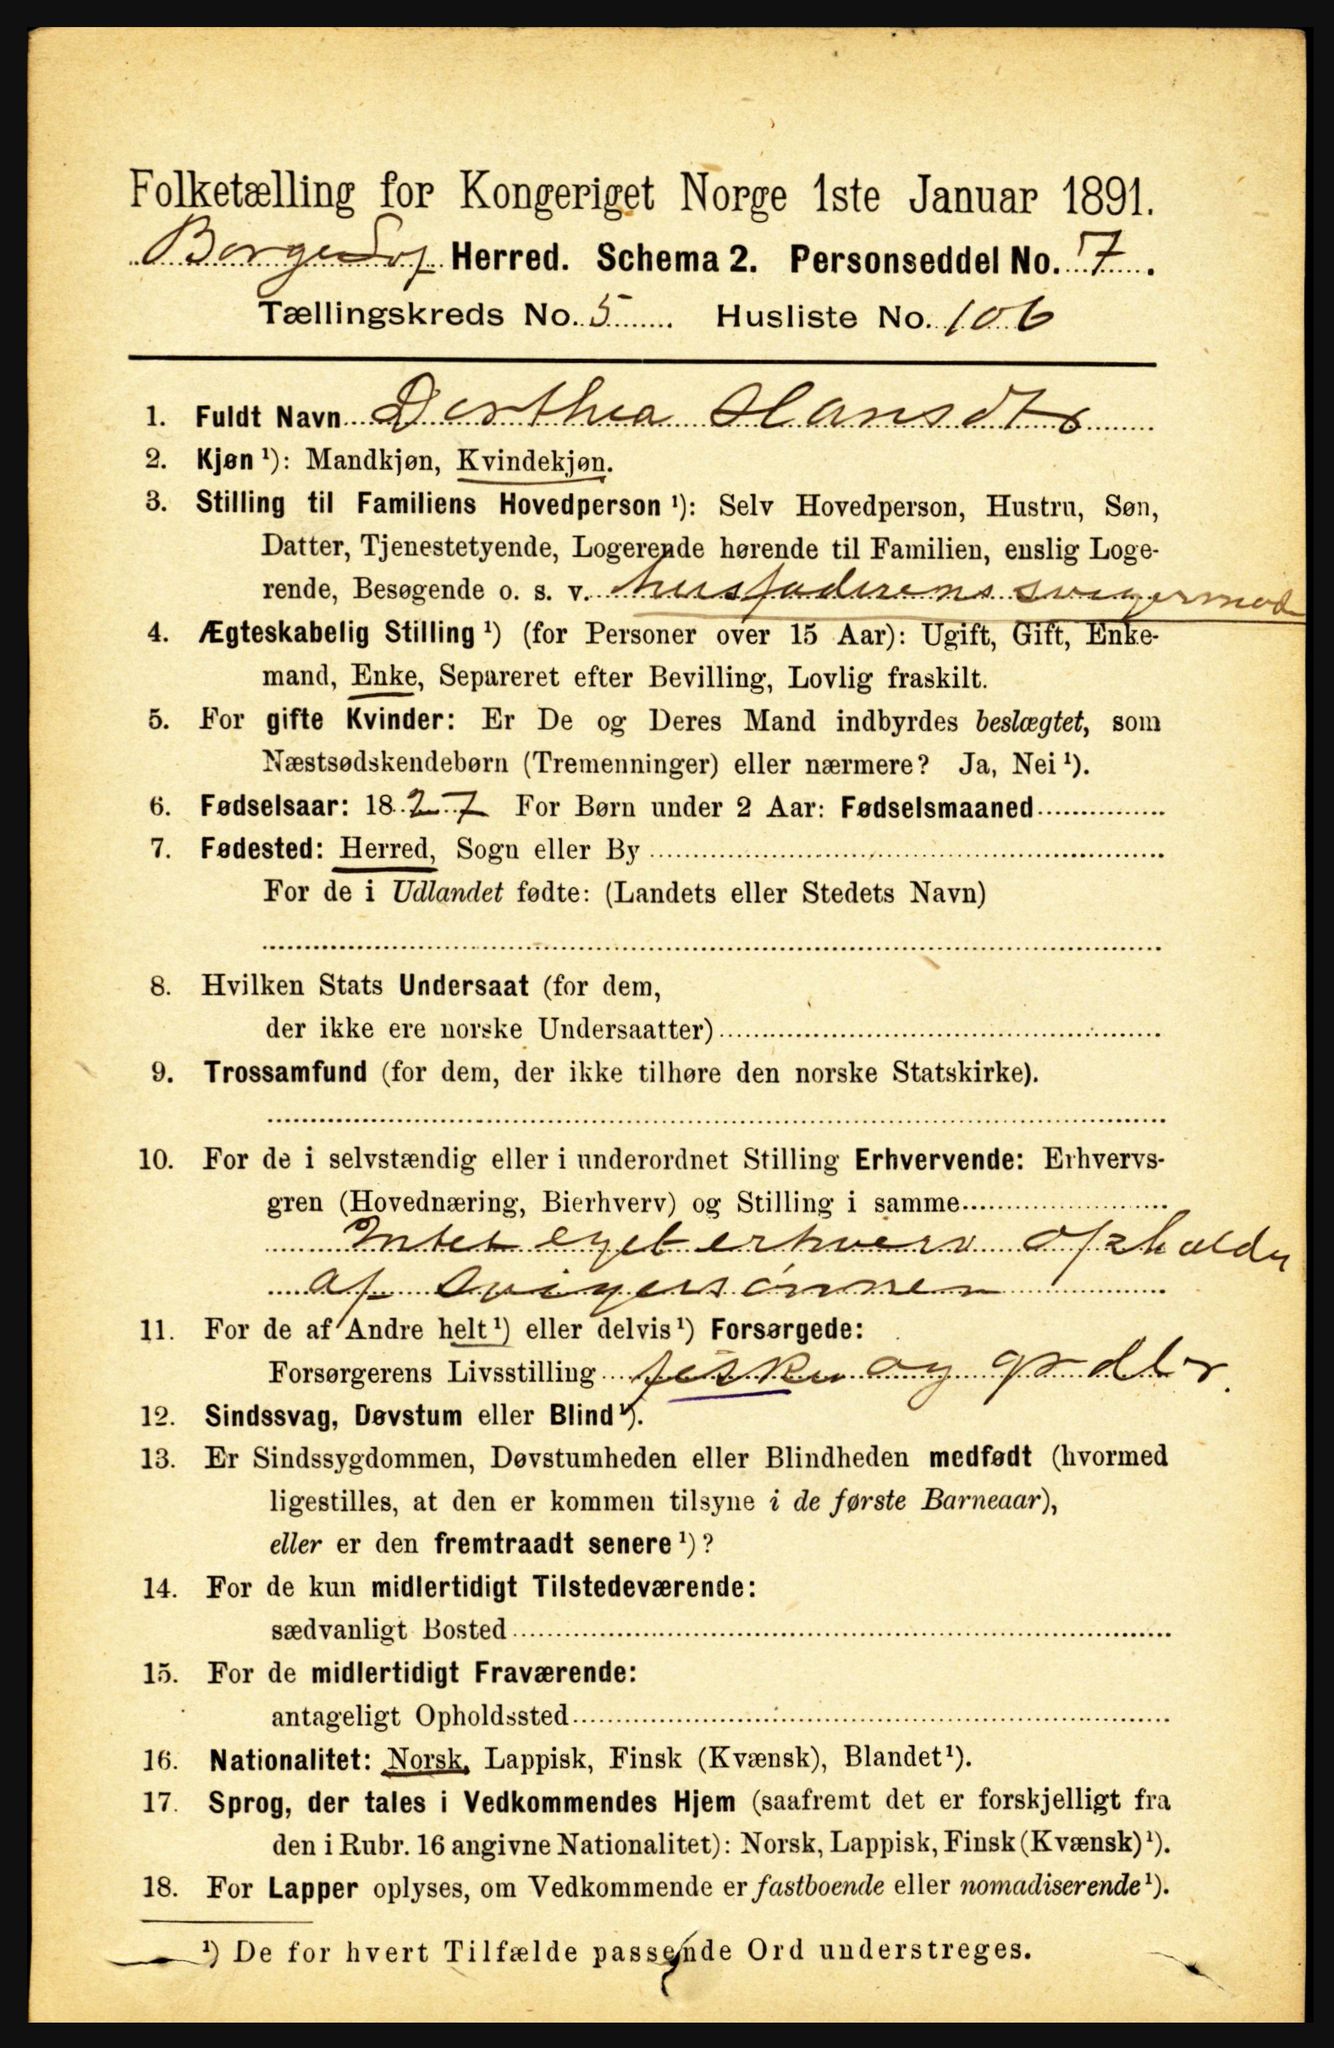 Folketælling for Kongeriget Norge 1ste Januar 1891.
Borge Herred. Schema 2. Personseddel No. 7.
Tællingskreds No. 5 Husliste No. 106
1. Fuldt Navn Dorthea Hansdtr
2. Kjøn ¹): Mandkjøn, Kvindekjøn.
3. Stilling til Familiens Hovedperson ¹): Selv Hovedperson, Hustru, Søn,
Datter, Tjenestetyende, Logerende hørende til Familien, enslig Loge-
rende, Besøgende o. s. v. husfaderens svigermod
4. Ægteskabelig Stilling ¹) (for Personer over 15 Aar): Ugift, Gift, Enke-
mand, Enke, Separeret efter Bevilling, Lovlig fraskilt.
5. For gifte Kvinder: Er De og Deres Mand indbyrdes beslægtet, som
Næstsødskendebørn (Tremenninger) eller nærmere? Ja, Nei ¹).
6. Fødselsaar: 1827 For Børn under 2 Aar: Fødselsmaaned
7. Fødested: Herred, Sogn eller By
For de i Udlandet fødte: (Landets eller Stedets Navn)
8. Hvilken Stats Undersaat (for dem,
der ikke ere norske Undersaatter)
9. Trossamfund (for dem, der ikke tilhøre den norske Statskirke).
10. For de i selvstændig eller i underordnet Stilling Erhvervende: Erhvervs-
gren (Hovednæring, Bierhverv) og Stilling i samme
Intet eget erhverv opholdes
af svigersønnen
11. For de af Andre helt ¹) eller delvis ¹) Forsørgede:
Forsørgerens Livsstilling fisker og grdbr.
12. Sindssvag, Døvstum eller Blind ¹).
13. Er Sindssygdommen, Døvstumheden eller Blindheden medfødt (hvormed
ligestilles, at den er kommen tilsyne i de første Barneaar),
eller er den fremtraadt senere ¹)?
14. For de kun midlertidigt Tilstedeværende:
sædvanligt Bosted
15. For de midlertidigt Fraværende:
antageligt Opholdssted
16. Nationalitet: Norsk, Lappisk, Finsk (Kvænsk), Blandet ¹).
17. Sprog, der tales i Vedkommendes Hjem (saafremt det er forskjelligt fra
den i Rubr. 16 angivne Nationalitet): Norsk, Lappisk, Finsk (Kvænsk) ¹).
18. For Lapper oplyses, om Vedkommende er fastboende eller nomadiserende ¹).
¹) De for hvert Tilfælde passende Ord understreges.